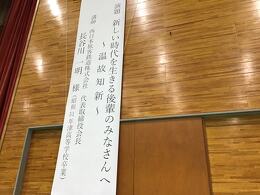 演題 新しい時代を生きる後輩のみなさんへ
～温故知新～
講師 西日本旅客鉄道株式会社 代表取締役会長
長谷川 一明 様